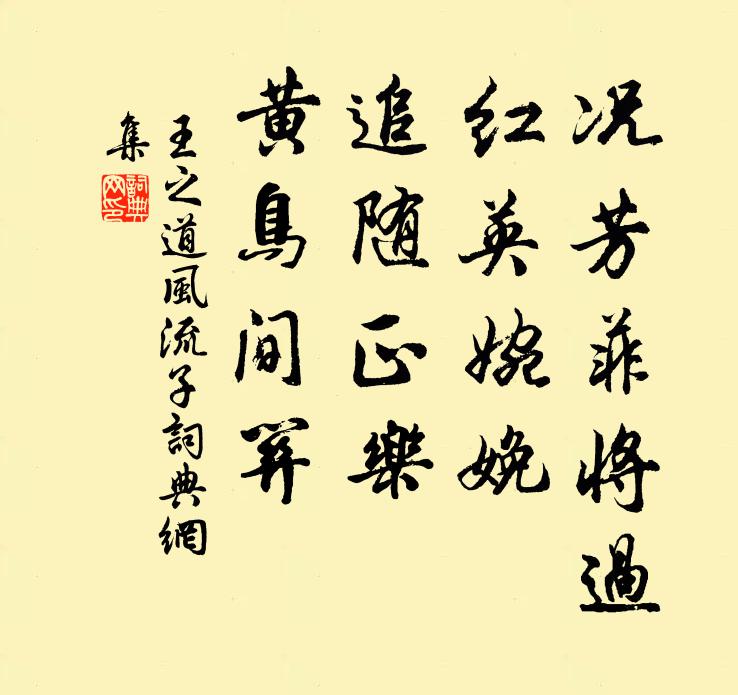 况芳菲将過
红英婉娩
追随正樂
黄鳥间關
王之道風流子詞典網
集
詞典網印